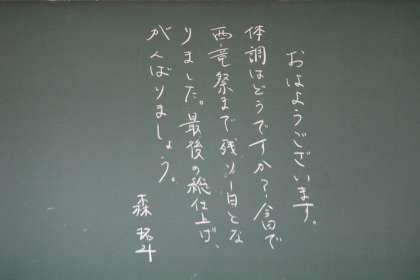 おはようございます。
体調はどうですか？今日で
西竜祭まで残り1日とな
りました。最後の総仕上げ、
がんばりましょう。
森